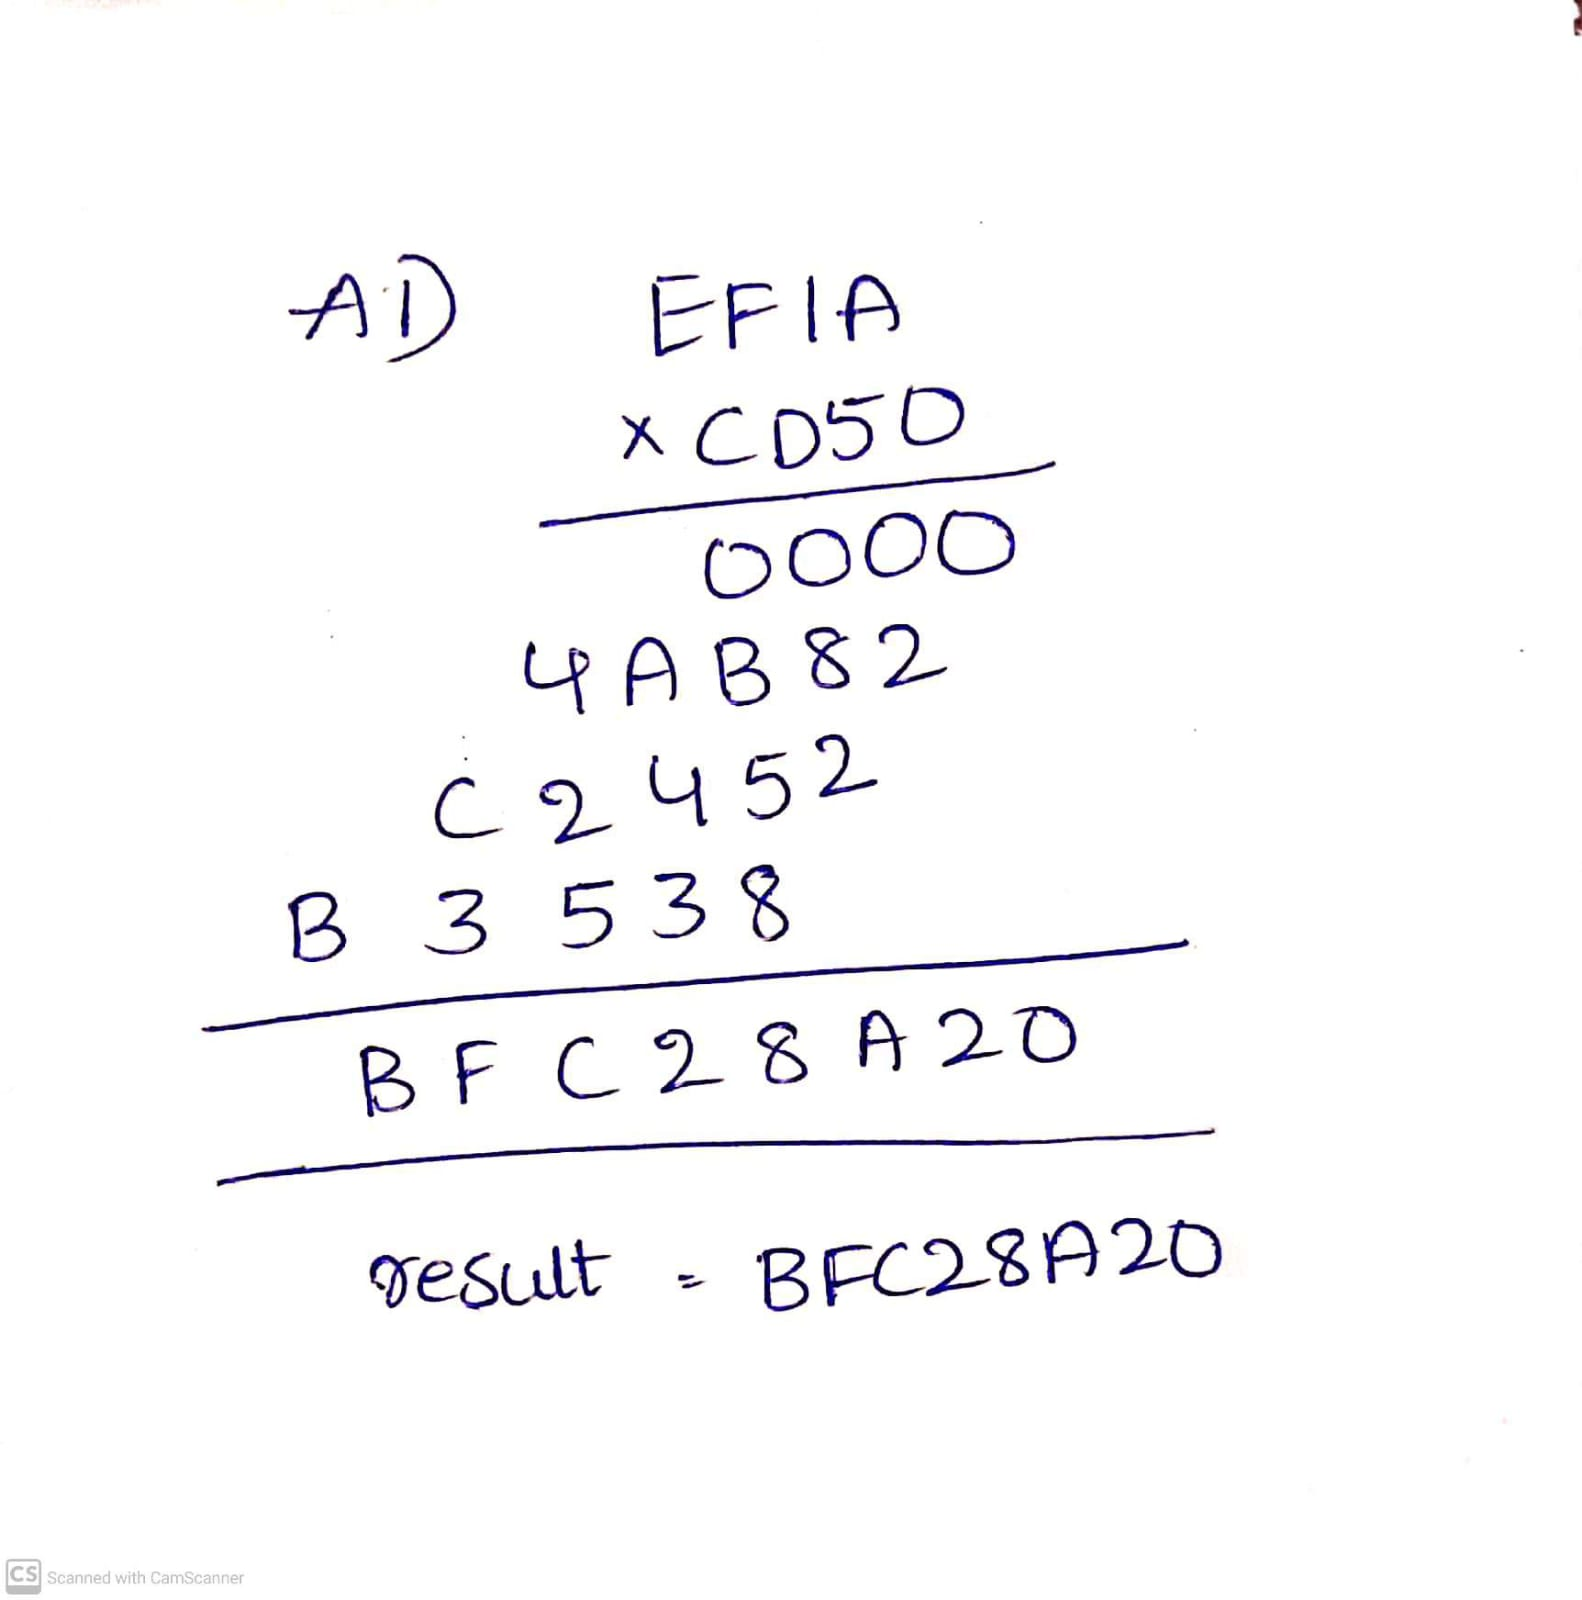 AD EF1A
x CD50
0000
4AB82
C2452
B3538
BFC28A20
result = BFC28A20
CS Scanned with CamScanner